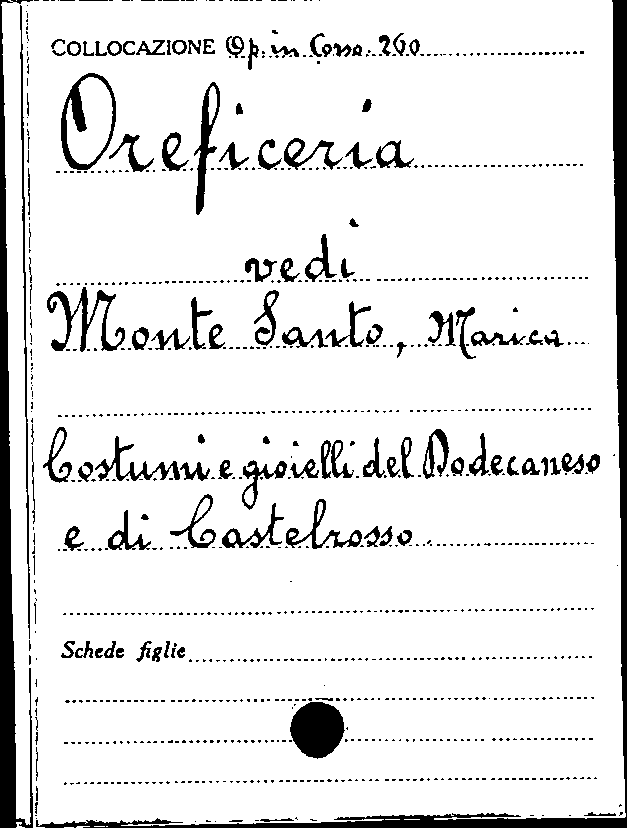 COLLOCAZIONE Op. in Corso. 260
Oreficeria
vedi
Monte Santo, Marica
Costumi e gioielli del Dodecaneso
e di Castelrosso.
Schede figlie